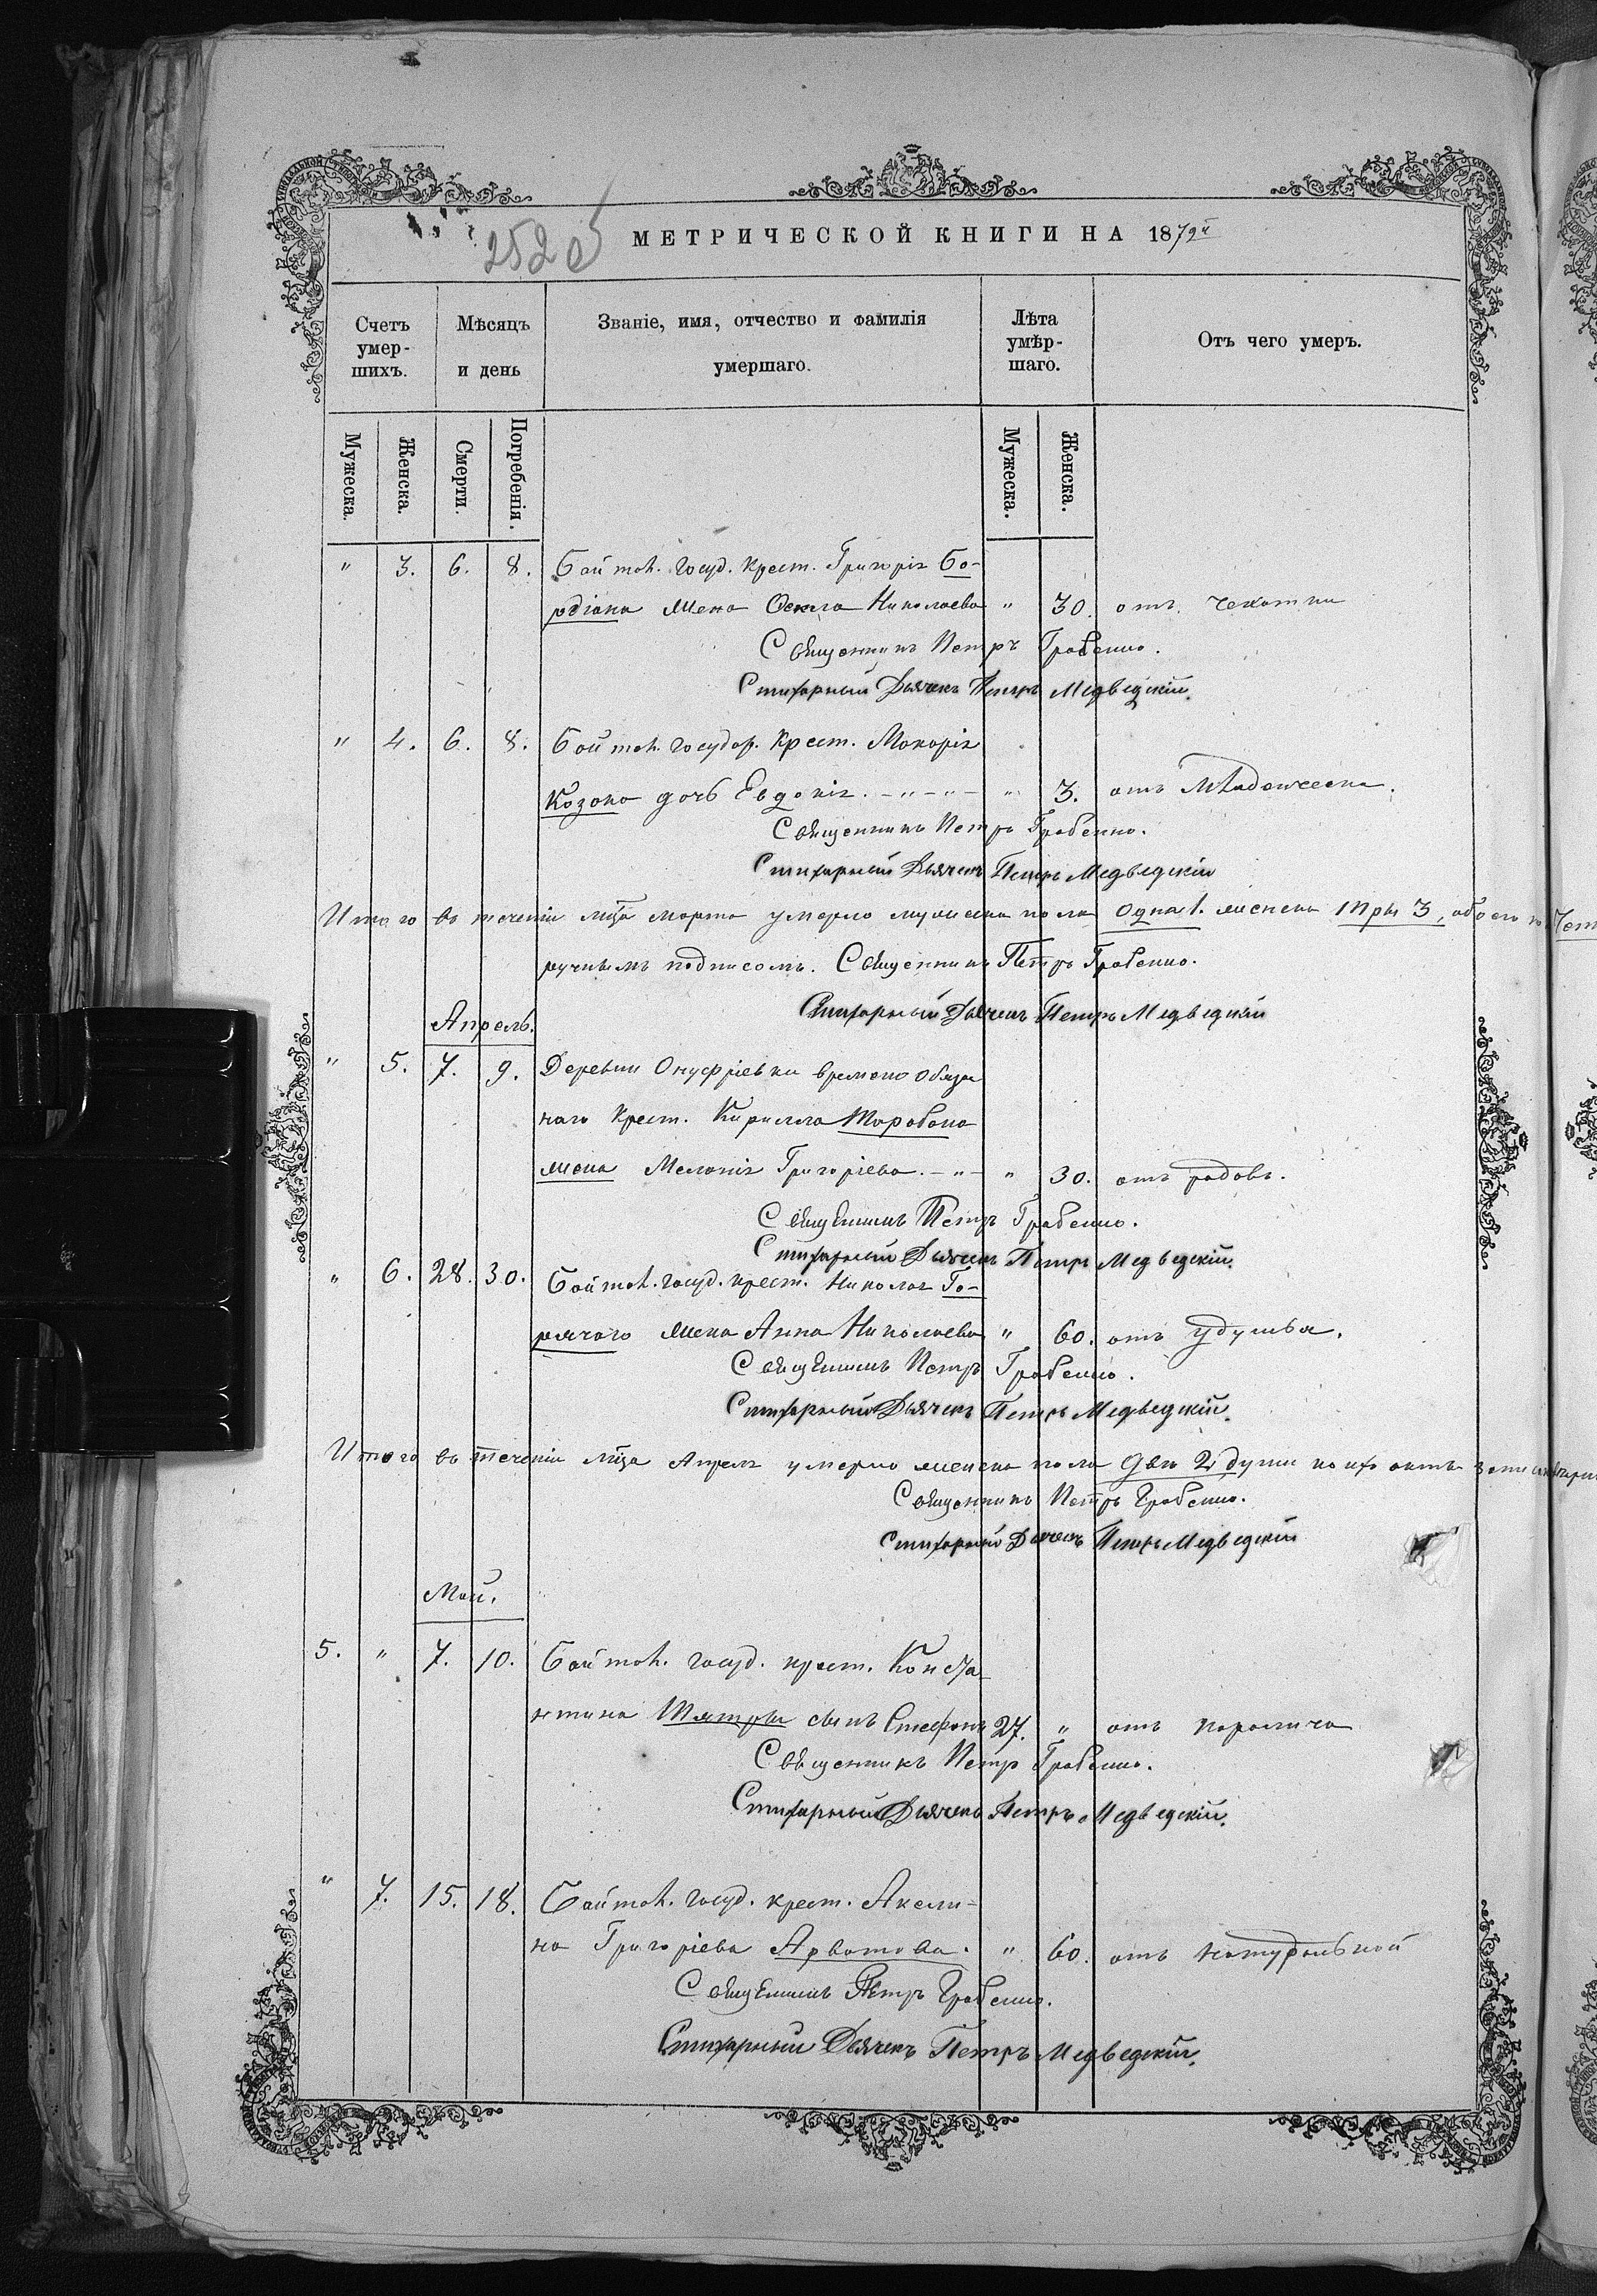 252 об
МЕТРИЧЕСКОЙ КНИГИ НА 1879й
Счетъ умер-шихъ.
Мѣсяцъ и день
Званіе, имя, отчество и фамилія умершаго.
Лѣта умѣр-шаго.
Отъ чего умеръ.
Мужеска. Женска. Смерти. Погребенія. Мужеска. Женска.
" 3. 6. 8. госуд. крест. Григорія Бо-
рдіана жена Николаева " 30. отъ чахотки
Священникъ Петръ
Стихарный Дьячекъ Петръ Медведскій.
" 4. 6. 8. государ. крест. Макарія
Козака дочь Евдокія. -"-"- " 3. отъ младеческа.
Священникъ Петръ
Стихарный Дьячекъ Петръ Медведскій
Итого въ теченіи мца марта умерло мужеска пола одна 1. женска три 3, обоего
ручнымъ подписомъ. Священникъ Петръ
Стихарный Дьячекъ Петръ Медведскій
Апрель.
" 5. 7. 9. Деревни Онуфріевки временно обяза
наго крест. Кирилла
жена Меланія Григоріева. -"- " 30. отъ родовъ.
Священникъ Петръ
Стихарный Дьячекъ Петръ Медведскій.
" 6. 28. 30. госуд. крест. Николая Го-
рячаго жена Анна Николаева " 60. отъ удушья.
Священникъ Петръ
Стихарный Дьячекъ Петръ Медведскій.
Итого въ теченіи мца Апреля умерло женска пола две 2 души
Священникъ Петръ
Стихарный Дьячекъ Петръ Медведскій
Май.
5. " 7. 10. госуд. крест. Конста
нтина сынъ Стефанъ 27. " отъ паралича
Священникъ Петръ
Стихарный Дьячекъ Петръ Медведскій.
" 7. 15. 18. госуд. крест. Акели-
на Григоріева Арватова. " 60. отъ натуральной
Священникъ Петръ
Стихарный Дьячекъ Петръ Медведскій.